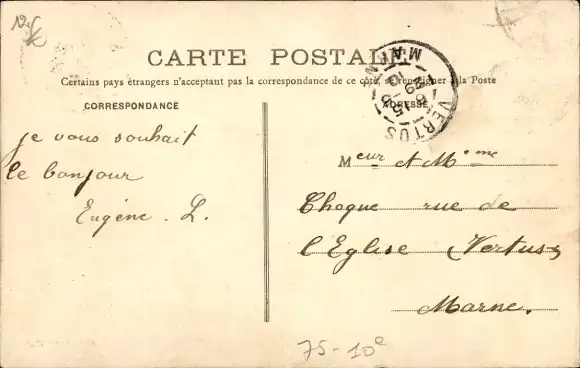 12f
CARTE POSTALE
Certains pays étrangers n'acceptant pas la correspondance de ce côté, se renseigner à la Poste
CORRESPONDANCE
ADRESSE
VERTUS
MARNE
je vous souhait
le bonjour
Eugène. L.
Meur et Meme
Choque rue de
l'Eglise Vertus
Marne.
75-10e